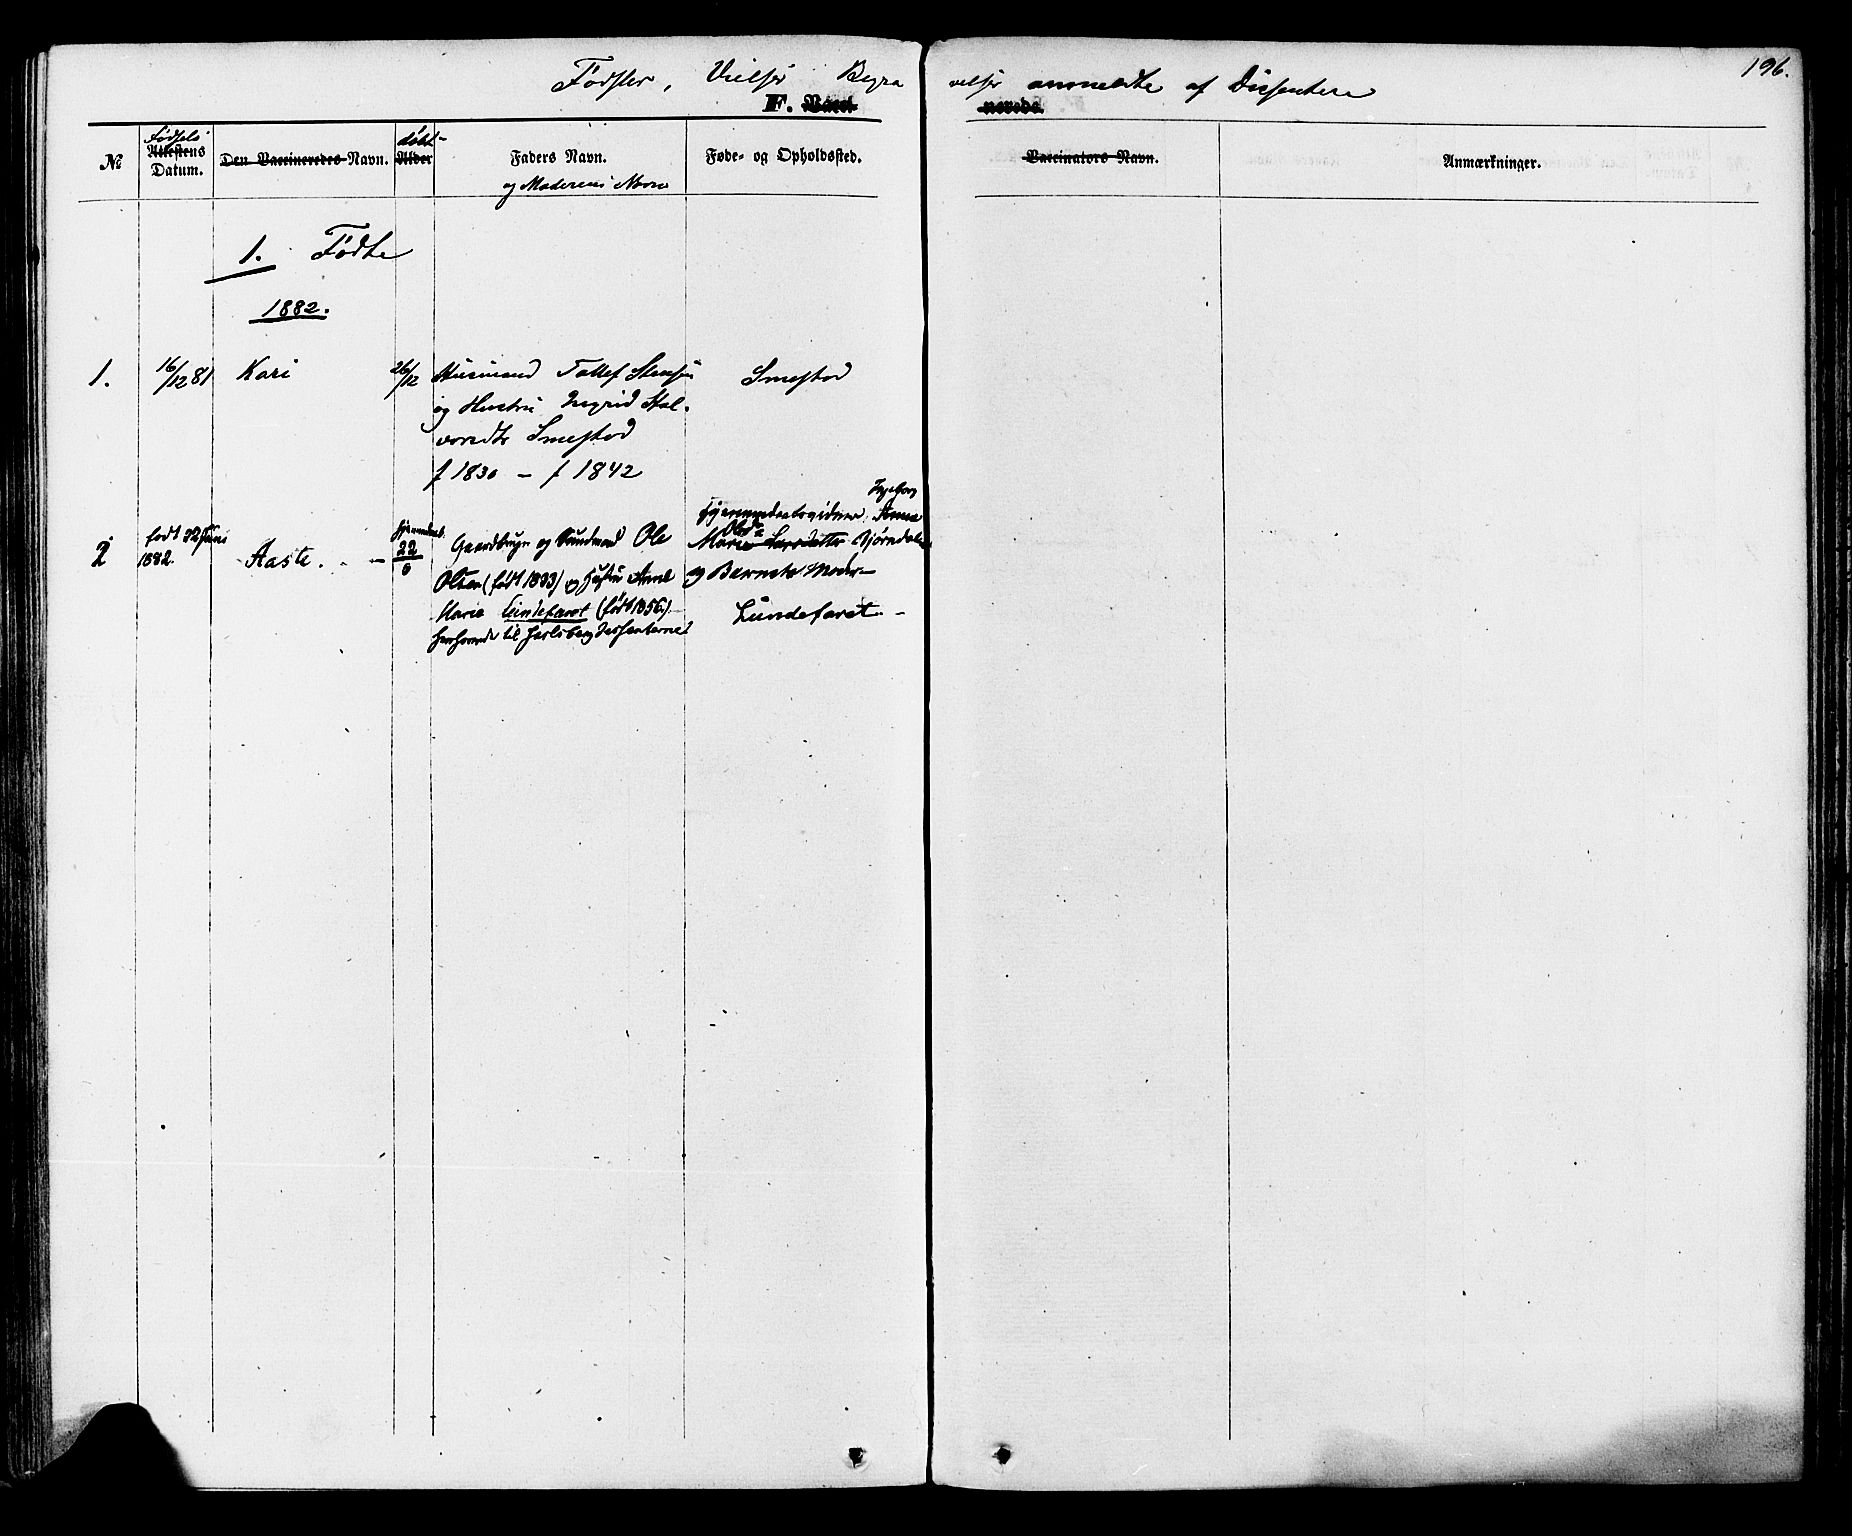 196.
Fødsler, Vielser Begravelser anmeldte af Dissentere
F. Vaccinerede.
№
Fødsels
Attestens
Datum.
Den Vaccineredes Navn.
døbt
Alder
Faders Navn.
og Moderens Navn
Føde- og Opholdssted.
Vaccinators Navn.
Anmærkninger.
1. Fødte
1882.
1. 16/12 81 Kari 26/12 Husmand Tollef Stensen Smestad
og Hustru Ingrid Hal-
vorsdtr Smestad
f 1830 - f 1842
2 født 22 Juni
1882. Aaste. hjemmedøbt
22
6
Gaardbruger og Ole
Olsen (født 1833) og Hustru Anne
Marie Lindefaret (født 1856)
til Jarlsberg Dissentermed
Ingeborg
Anne
Olsd.
Marie Larsdatter Bjørndalen
og Barnets Moder
Lundefaret